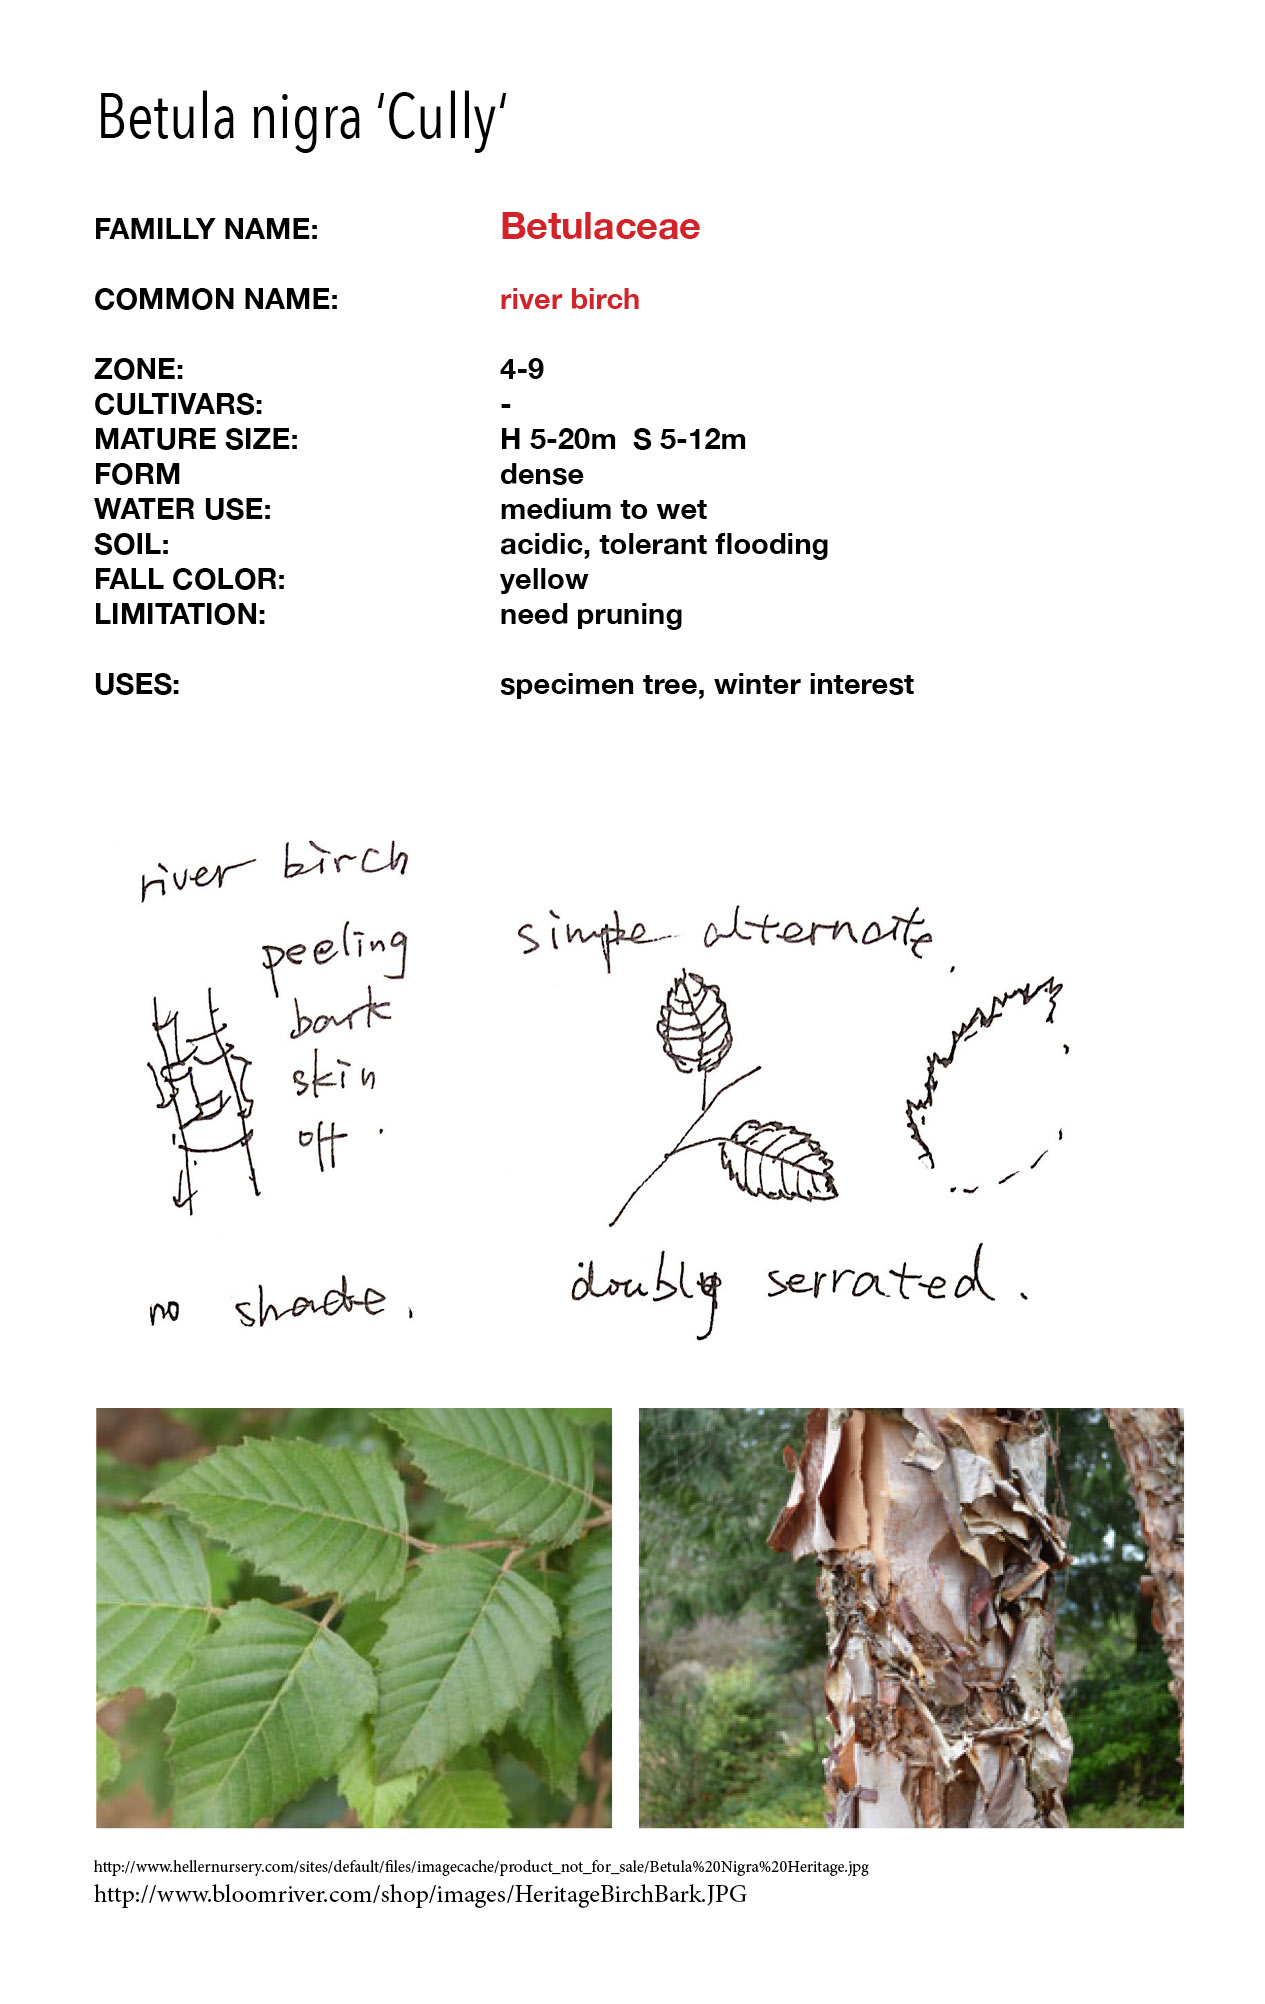 Betula nigra ‘Cully‘
FAMILLY NAME: Betulaceae
COMMON NAME: river birch
ZONE: 4-9
CULTIVARS: -
MATURE SIZE: H 5-20m S 5-12m
FORM dense
WATER USE: medium to wet
SOIL: acidic, tolerant flooding
FALL COLOR: yellow
LIMITATION: need pruning
USES: specimen tree, winter interest
river birch
peeling
bark
skin
off.
no shade.
simple alternate.
doubly serrated.
http://www.hellernursery.com/sites/default/files/imagecache/product_not_for_sale/Betula%20Nigra%20Heritage.jpg
http://www.bloomriver.com/shop/images/HeritageBirchBark.JPG